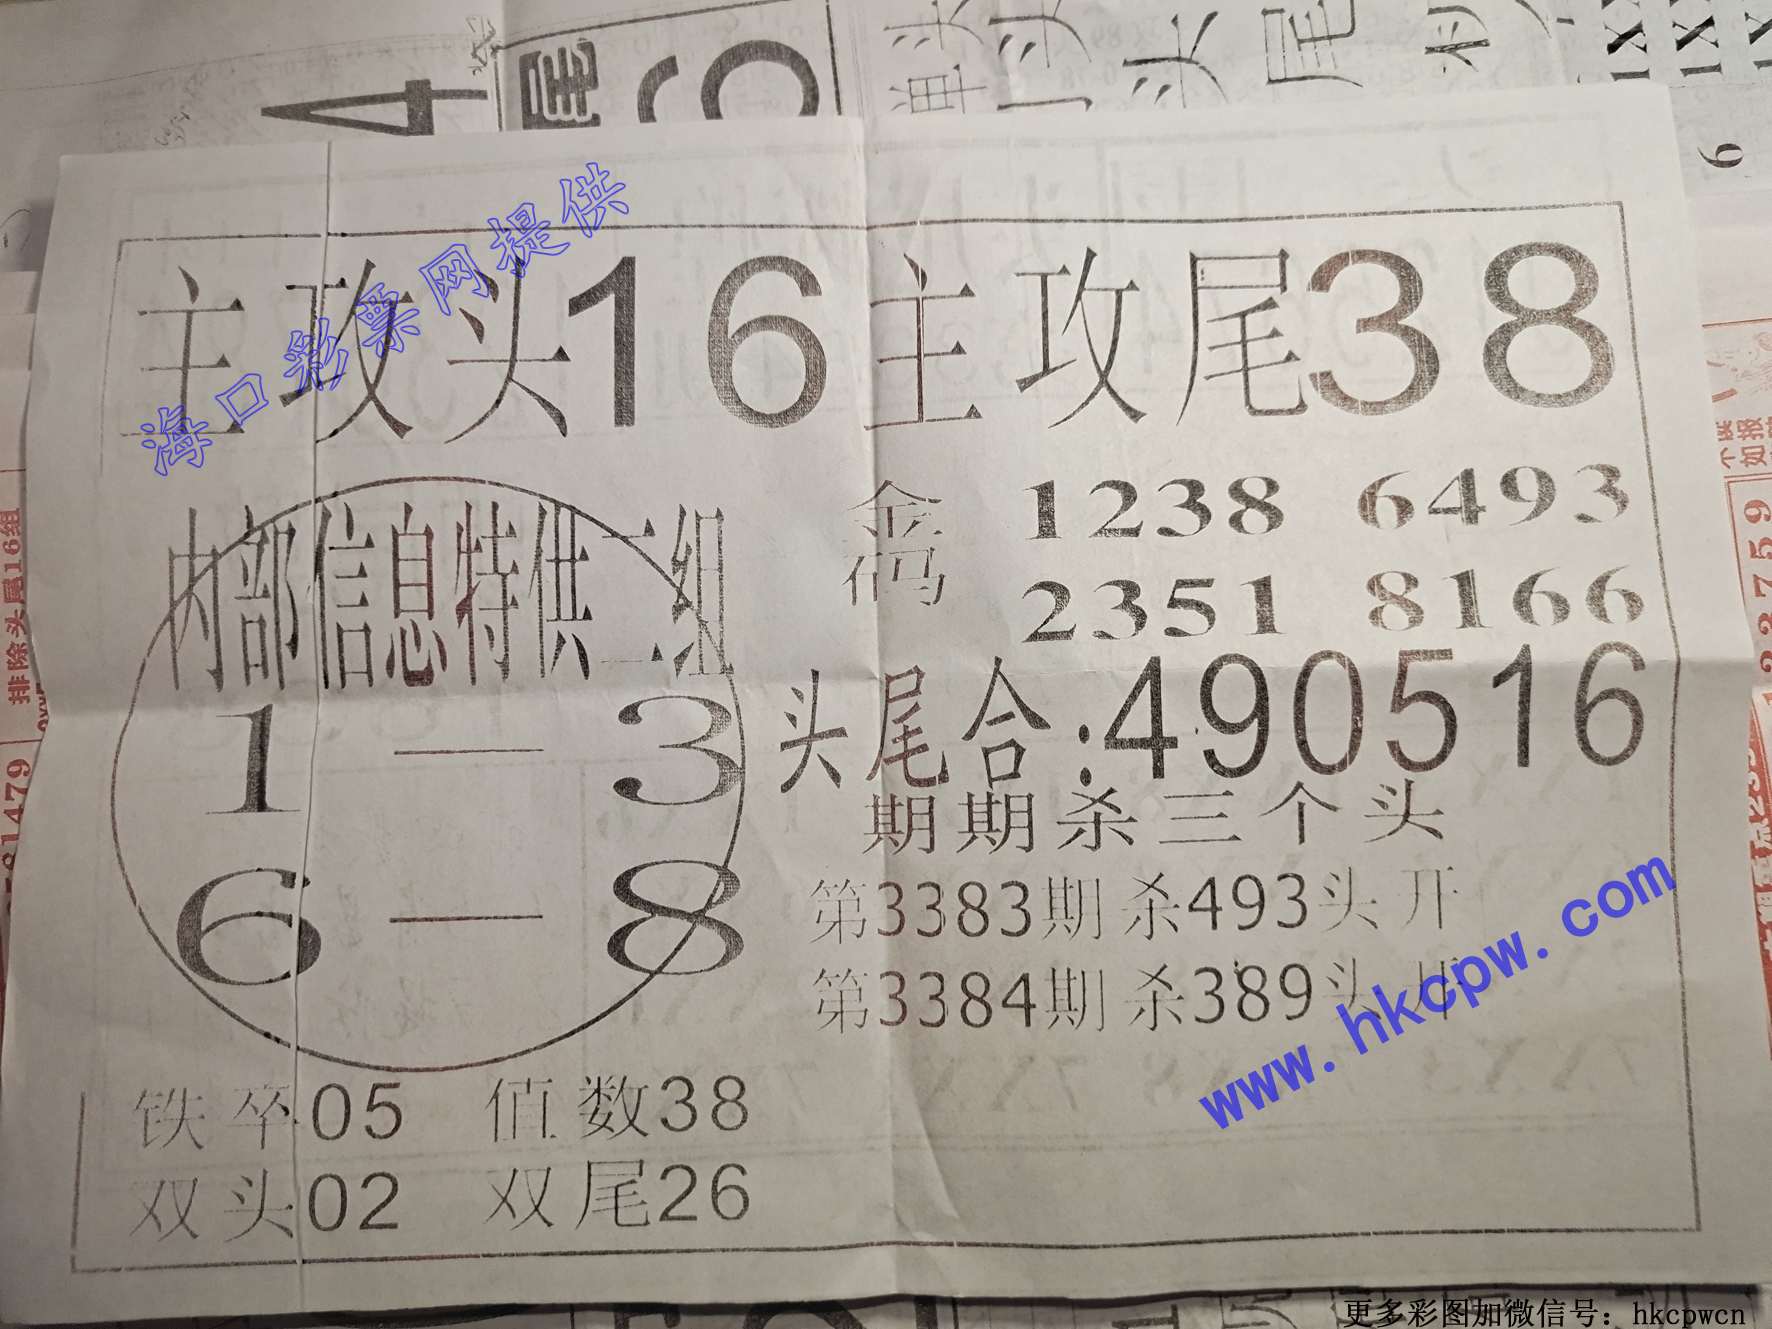 主攻头16主攻尾38
海口彩票网提供
内部信息特供二组
1—3
6—8
金码 1238 6493
2351 8166
头尾合:490516
期期杀三个头
第3383期杀493头开
第3384期杀389头开
铁卒05 值数38
双头02 双尾26
www.hkcpw.com
更多彩图加微信号：hkcpwcn
排除头尾16组
581479
123759
4
尾
单头
头
尾
1X
1X
6
如报